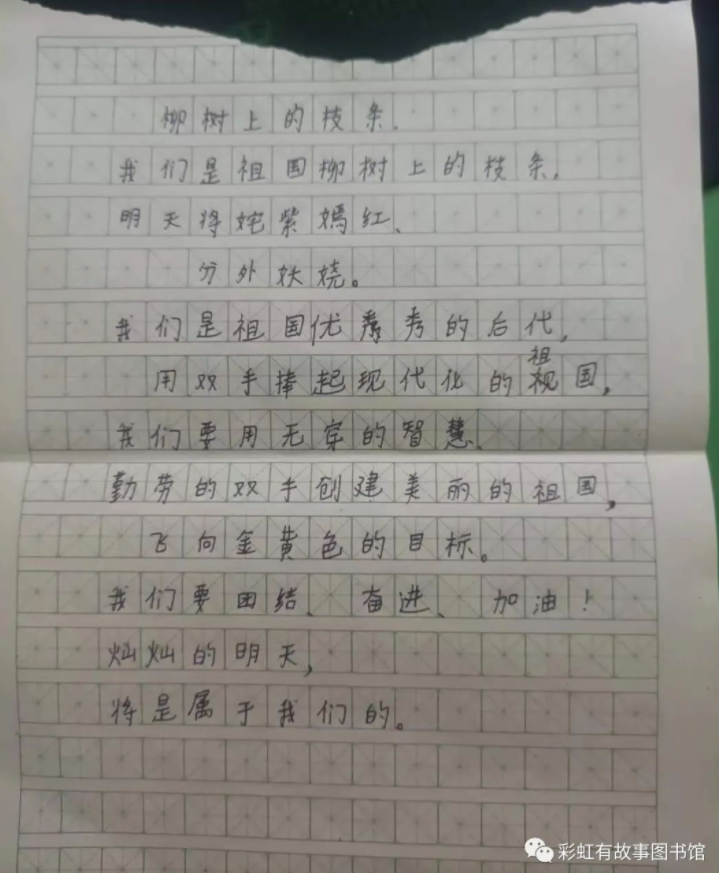 柳树上的枝条.
我们是祖国柳树上的枝条,
明天将姹紫嫣红、
分外妖娆。
我们是祖国优秀的后代,
用双手捧起现代化的祖国,
我们要用无穿的智慧、
勤劳的双手创建美丽的祖国,
飞向金黄色的目标。
我们要团结、奋进、加油!
灿灿的明天,
将是属于我们的。
彩虹有故事图书馆